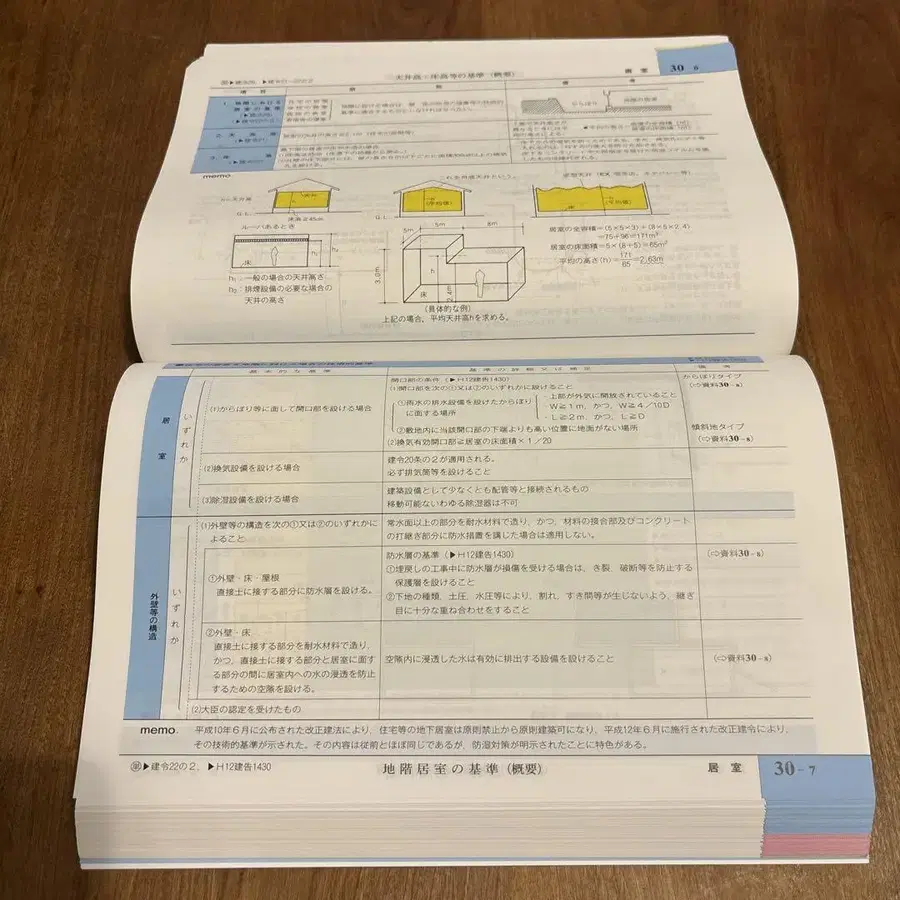 天井高・床高等の基準(概要)
居室
30-6
memo
これを舟底天井という。
G.L.
床高≧45cm
G.L.
(平均値)
床
(平均値)
ルーバあるとき
床
h₁:一般の場合の天井高さ
h₂:排煙設備の必要な場合の
天井の高さ
5m
5m
8m
3.0m
2.4m
h
床
(具体的な例)
上記の場合、平均天井高hを求める。
居室の全容積=(5×5×3)+(8×5×2.4)
=75+96=171m³
居室の床面積=5×(8+5)=65m²
平均の高さ(h)=171/65=2.63m
基本的な基準
基準の詳細又は補足
備考
居室
いずれか
(1)からぼり等に面して開口部を設ける場合
開口部の条件(▶H12建告1430)
(1)開口部を次の①又は②のいずれかに設けること
①雨水の排水設備を設けたからぼり
に面する場所
・上部が外気に開放されていること
・W≧1m, かつ, W≧4/10D
・L≧2m, かつ, L≧D
②敷地内に当該開口部の下端よりも高い位置に地面がない場所
(2)換気有効開口部≧居室の床面積×1/20
からぼりタイプ
(⇨資料30-8)
傾斜地タイプ
(⇨資料30-8)
(2)換気設備を設ける場合
建令20条の2が適用される。
必ず排気筒等を設けること
(3)除湿設備を設ける場合
建築設備として少なくとも配管等と接続されるもの
移動可能ないわゆる除湿器は不可
外壁等の構造
いずれか
(1)外壁等の構造を次の①又は②のいずれかに
よること
常水面以上の部分を耐水材料で造り, かつ, 材料の接合部及びコンクリート
の打継ぎ部分に防水措置を講じた場合は適用しない。
①外壁・床・屋根
直接土に接する部分に防水層を設ける。
防水層の基準(▶H12建告1430)
①埋戻しの工事中に防水層が損傷を受ける場合は, き裂, 破断等を防止する
保護層を設けること
②下地の種類, 土圧, 水圧等により, 割れ, すき間等が生じないよう, 継ぎ
目に十分な重ね合わせをすること
(⇨資料30-8)
②外壁・床
直接土に接する部分を耐水材料で造り,
かつ, 直接土に接する部分と居室に面す
る部分の間に居室内への水の浸透を防止
するための空隙を設ける。
空隙内に浸透した水は有効に排出する設備を設けること
(⇨資料30-8)
(2)大臣の認定を受けたもの
memo. 平成10年6月に公布された改正建法により, 住宅等の地下居室は原則禁止から原則建築可になり, 平成12年6月に施行された改正建令により,
その技術的基準が示された。その内容は従前とほぼ同じであるが, 防湿対策が明示されたことに特色がある。
▶建令22の2, ▶H12建告1430
地階居室の基準(概要)
居室
30-7